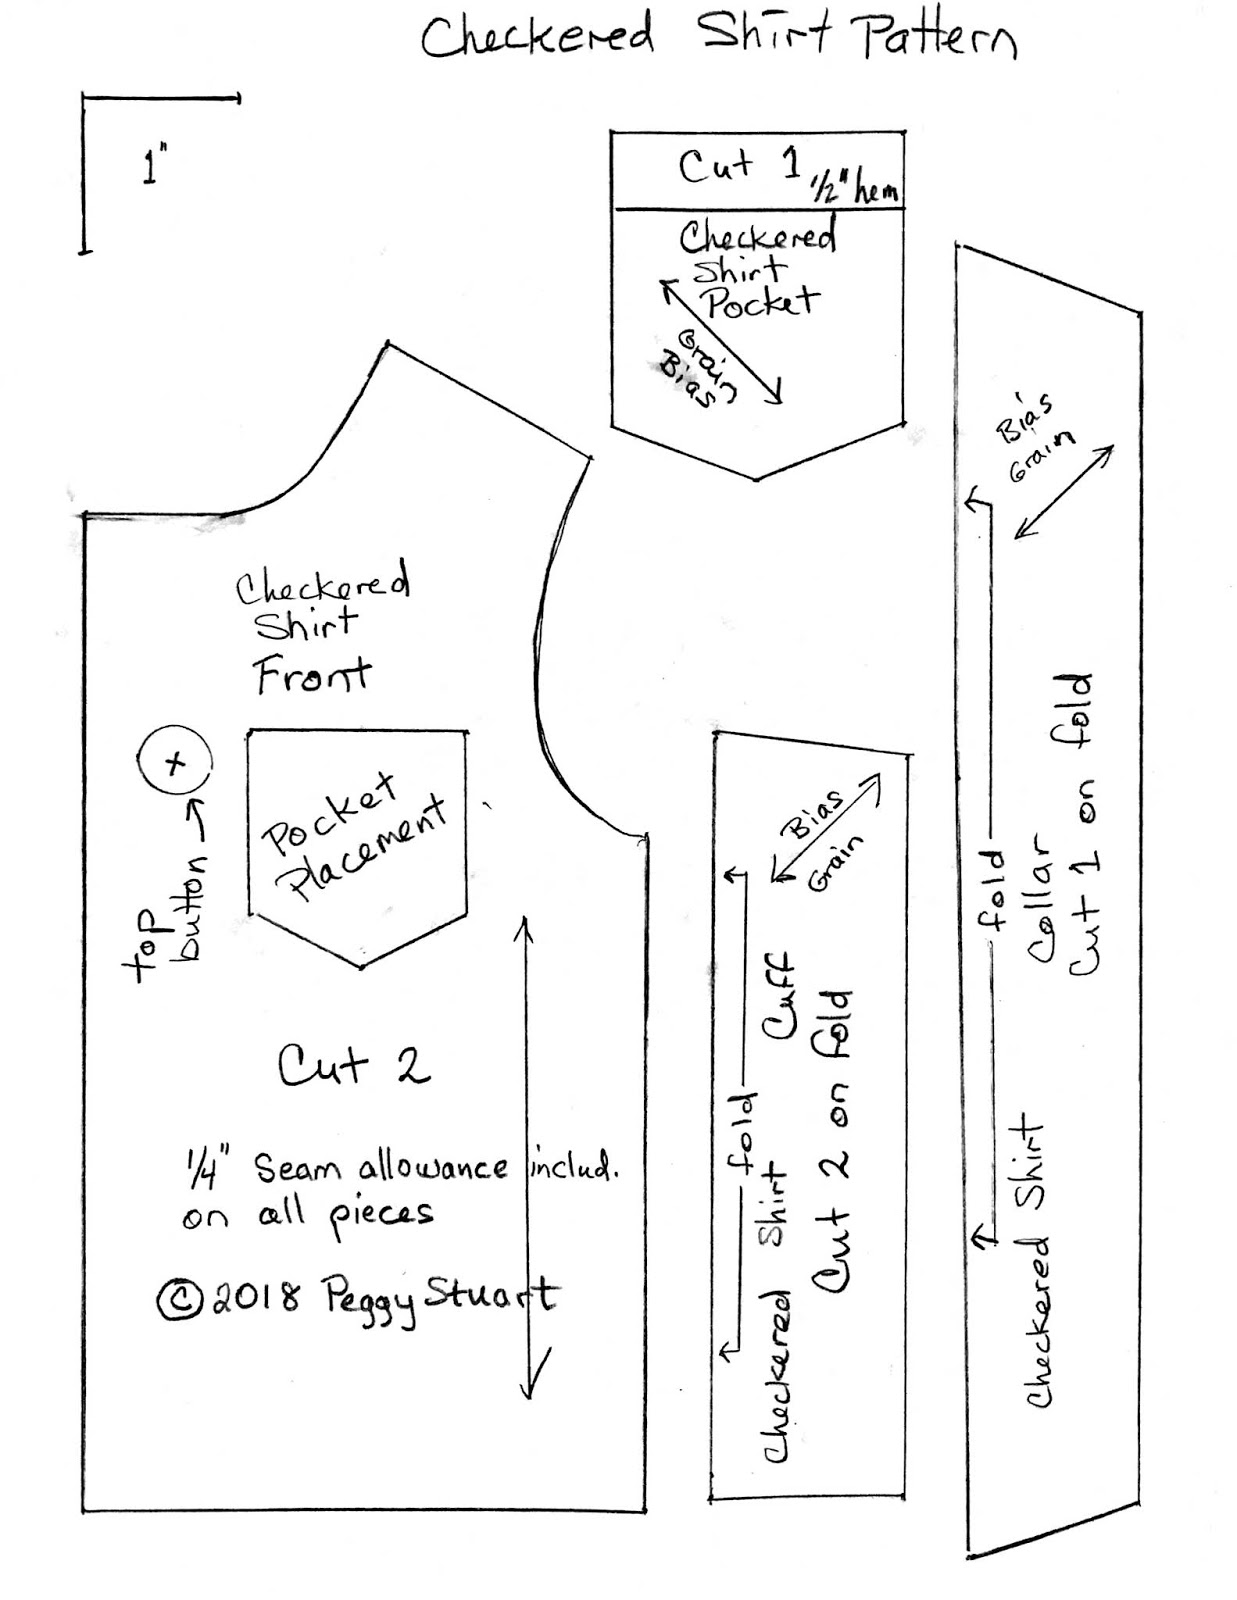 Checkered Shirt Pattern
1"
Cut 1
1/2" hem
Checkered
Shirt
Pocket
Grain
Bias
Bias
Grain
fold
Collar
Cut 1 on fold
Checkered Shirt
Checkered
Shirt
Front
+
top
button
Pocket
Placement
Cut 2
1/4" Seam allowance includ.
on all pieces
© 2018 Peggy Stuart
Bias
Grain
fold
Checkered Shirt Cuff
Cut 2 on fold